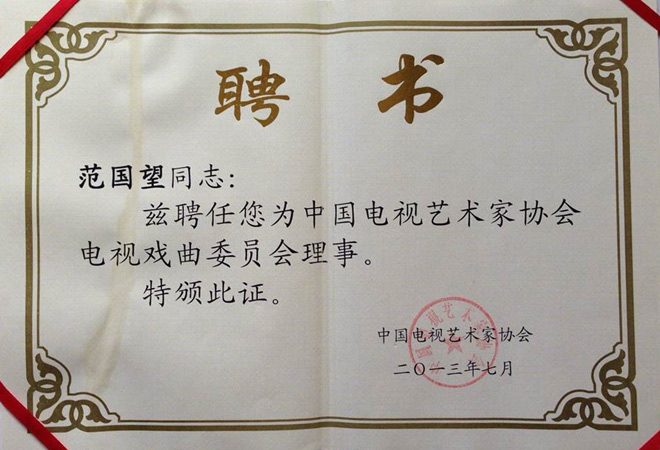 聘书
范国望同志：
兹聘任您为中国电视艺术家协会
电视戏曲委员会理事。
特颁此证。
中国电视艺术家协会
二〇一三年七月